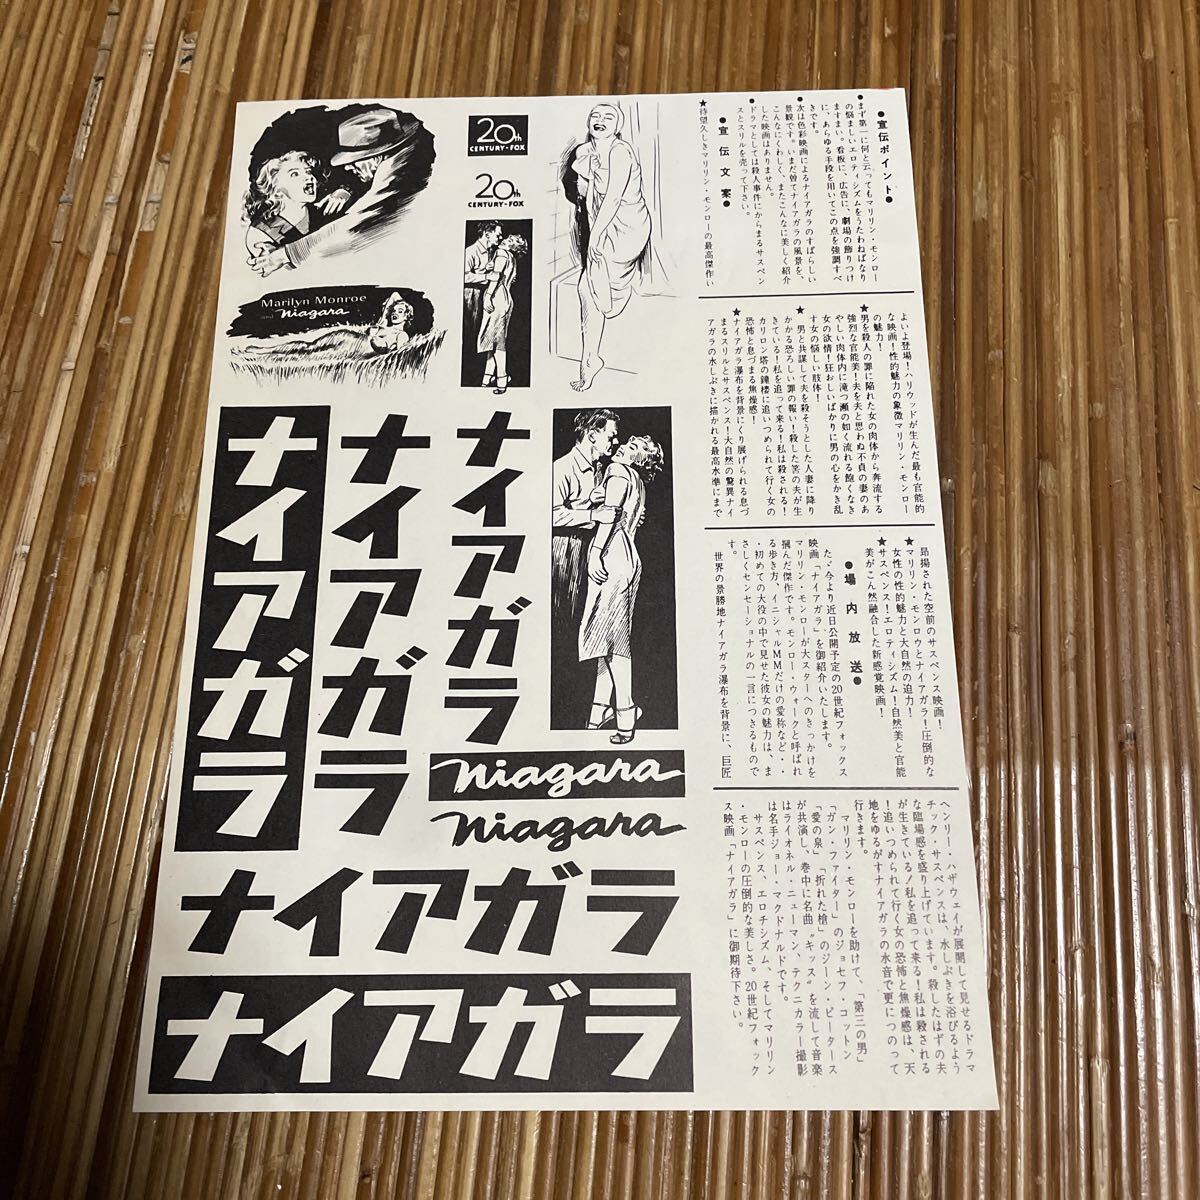 20th
CENTURY-FOX
20th
CENTURY-FOX
Marilyn Monroe
and niagara
ナイアガラ
ナイアガラ
ナイアガラ
niagara
niagara
ナイアガラ
ナイアガラ
●宣伝ポイント●
●まず第一に何と云ってもマリリン・モンロー
の悩ましいエロティシズムをうたわねばなり
ますまい。看板に、広告に、劇場の飾りつけ
に、あらゆる手段を用いてこの点を強調すべ
きです。
●次は色彩映画によるナイアガラのすばらしい
景観です。いまだ曽てナイアガラの風景を、
こんなにくわしく、またこんなに美しく紹介
した映画はありません。
●ドラマとしては殺人事件にからまるサスペン
スとスリルを売って下さい。
●宣伝文案●
★待望久しきマリリン・モンローの最高傑作い
よいよ登場！ハリウッドが生んだ最も官能的
な映画！性的魅力の象徴マリリン・モンロー
の魅力！
★男を殺人の罪に陥れた女の肉体から奔流する
強烈な官能美！夫を夫と思わぬ不貞の妻のあ
やしい肉体内に滝つ瀬の如く流れる飽くなき
女の欲情！狂おしいばかりに男の心をかき乱
す女の悩しい肢体！
★男と共謀して夫を殺そうとした人妻に降り
かかる恐ろしい罪の報い！殺した筈の夫が生
きている！私を追って来る！私は殺される！
カリロン塔の鐘楼に追いつめられて行く女の
恐怖と息づまる焦燥感！
★ナイアガラ瀑布を背景にくり展げられる息づ
まるスリルとサスペンス！大自然の驚異ナイ
アガラの水しぶきに描かれる最高水準にまで
昂揚された空前のサスペンス映画！
★マリリン・モンロウとナイアガラ！圧倒的な
女性の性的魅力と大自然の迫力！
★サスペンス！エロティシズム！自然美と官能
美がこん然融合した新感覚映画！
●場内放送●
たゞ今より近日公開予定の20世紀フォックス
映画「ナイアガラ」を御紹介いたします。
マリリン・モンローが大スターへのきっかけを
摑んだ傑作です。モンロー・ウォークと呼ばれ
る歩き方、イニシャルMMだけの愛称など・・
・初めての大役の中で見せた彼女の魅力は、ま
さしくセンセーショナルの一言につきるもので
す。
世界の景勝地ナイアガラ瀑布を背景に、巨匠
ヘンリー・ハザウェイが展開して見せるドラマ
チック・サスペンスは、水しぶきを浴びるよう
な臨場感を盛り上げています。殺したはずの夫
が生きている！私を追って来る！私は殺される
！追いつめられて行く女の恐怖と焦燥感は、天
地をゆるがすナイアガラの水音で更につのって
行きます。
マリリン・モンローを助けて、「第三の男」
「ガン・ファイター」のジョセフ・コットン
「愛の泉」「折れた槍」のジーン・ピータース
が共演し、巻中に名曲“キッス”を流して音楽
はライオネル・ニューマン、テクニカラー撮影
は名手ジョー・マクドナルドです。
サスペンス、エロチシズム、そしてマリリン
・モンローの圧倒的な美しさ。20世紀フォック
ス映画「ナイアガラ」に御期待下さい。